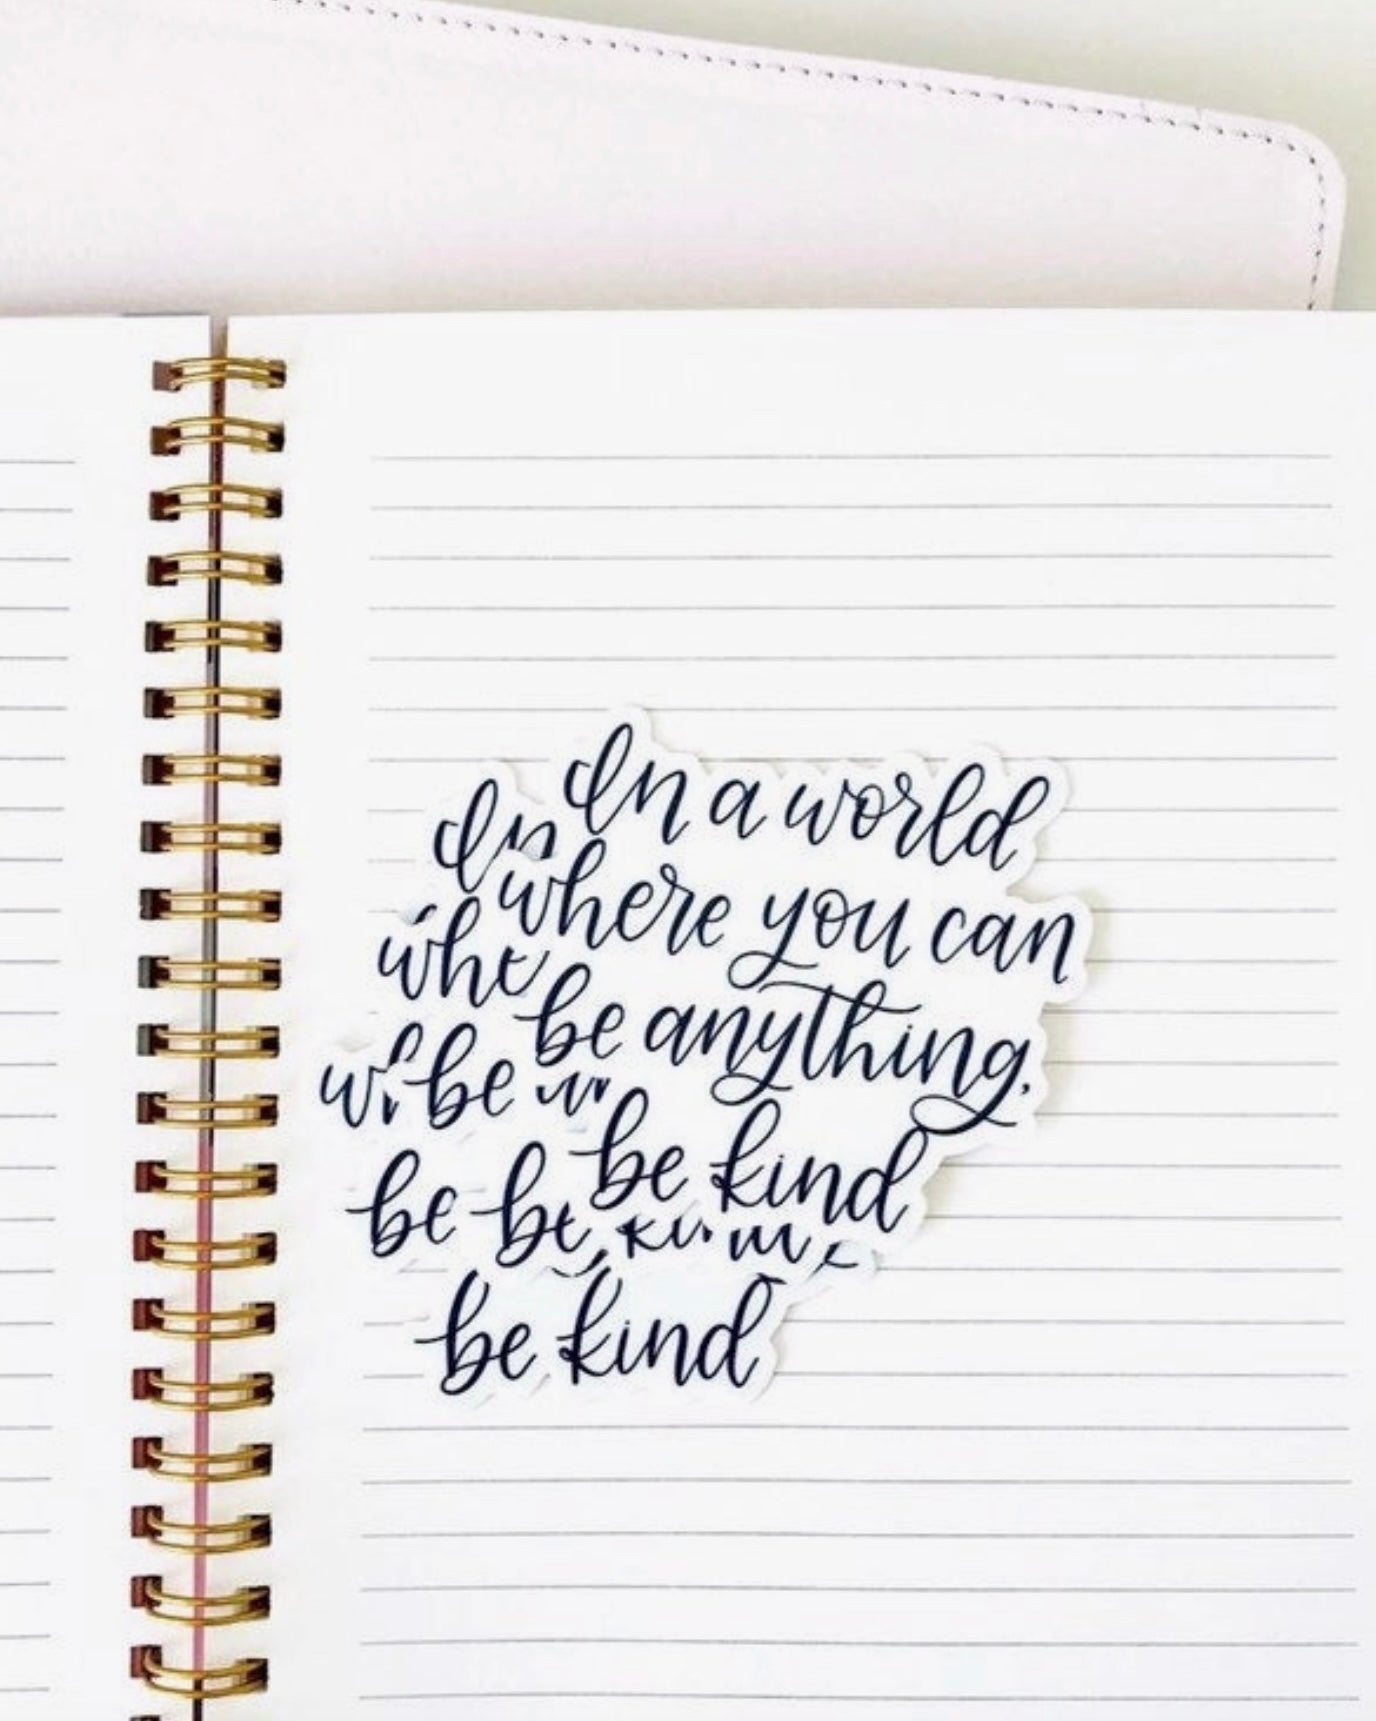 In a world
where you can
be anything,
be kind
In
be
be be
be kind